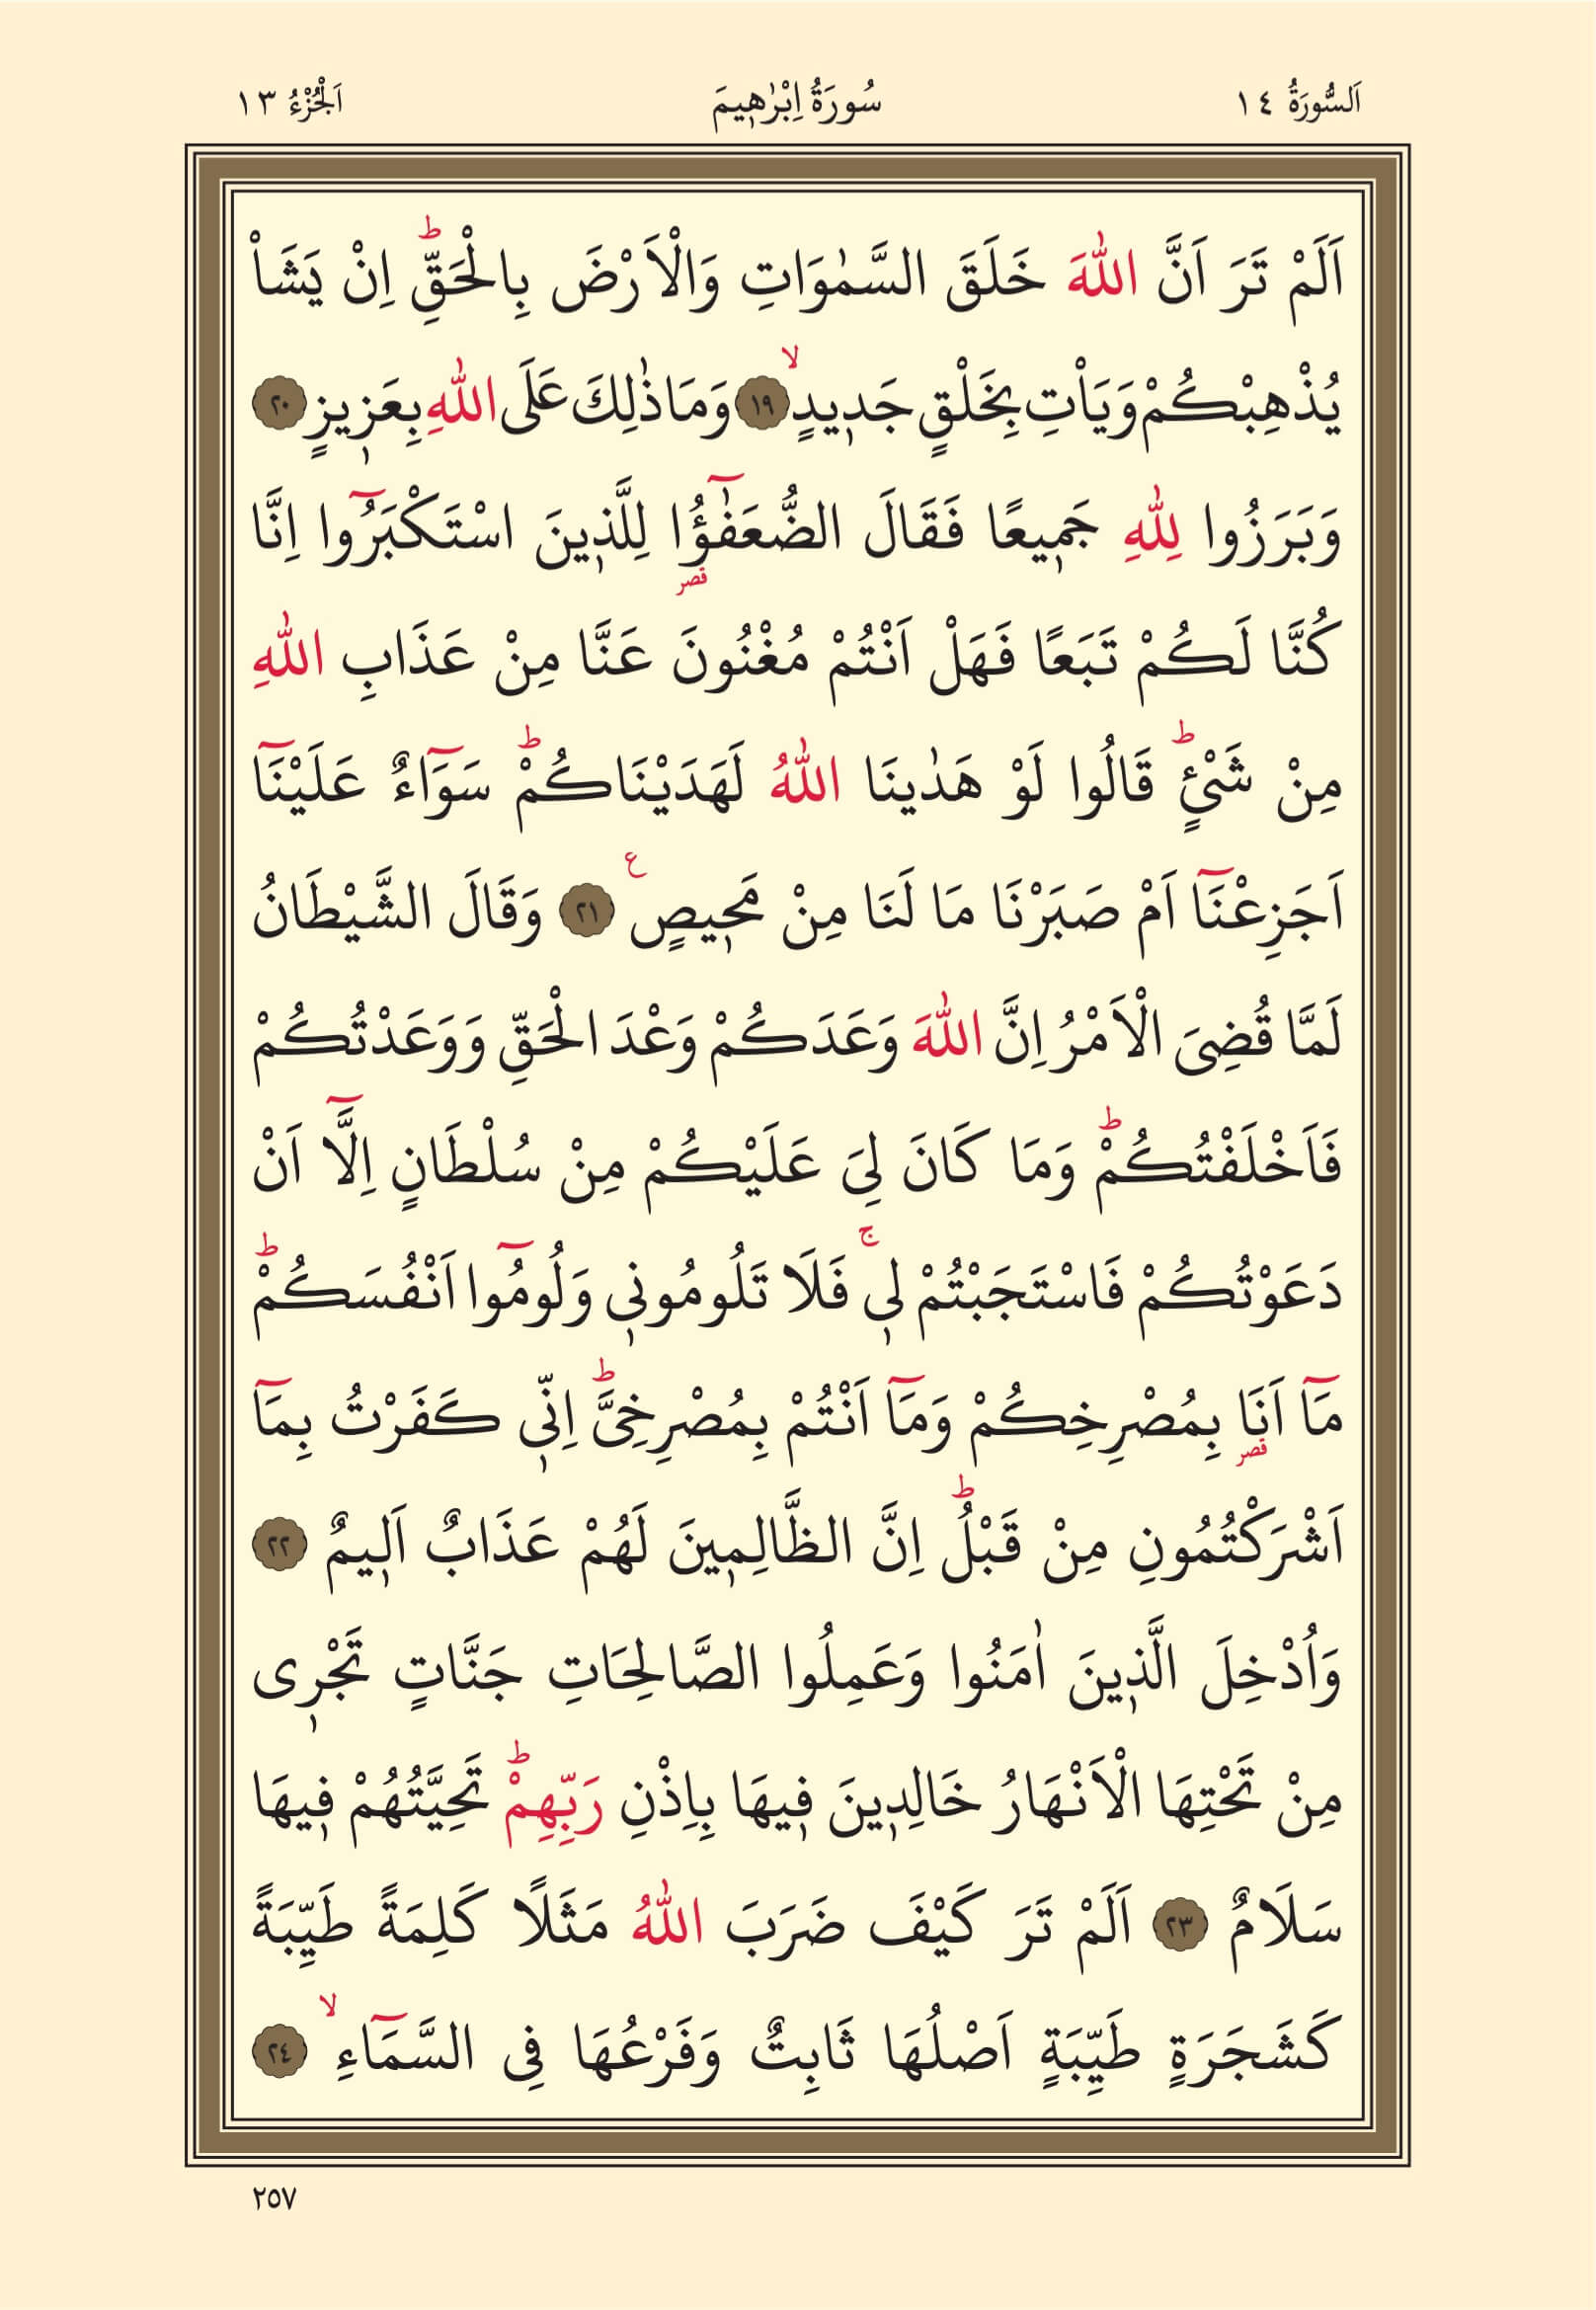 اَلسُّورَةُ ١٤ سُورَةُ اِبْرٰه۪يمَ اَلْجُزْءُ ١٣
اَلَمْ تَرَ اَنَّ اللّٰهَ خَلَقَ السَّمٰوَاتِ وَالْاَرْضَ بِالْحَقِّۜ اِنْ يَشَأْ
يُذْهِبْكُمْ وَيَأْتِ بِخَلْقٍ جَد۪يدٍۙ ١٩ وَمَا ذٰلِكَ عَلَى اللّٰهِ بِعَز۪يزٍ ٢٠
وَبَرَزُوا لِلّٰهِ جَم۪يعًا فَقَالَ الضُّعَفٰٓؤُ۬ا لِلَّذ۪ينَ اسْتَكْبَرُٓوا اِنَّا
كُنَّا لَكُمْ تَبَعًا فَهَلْ اَنْتُمْ مُغْنُونَ عَنَّا مِنْ عَذَابِ اللّٰهِ
مِنْ شَيْءٍۜ قَالُوا لَوْ هَدٰينَا اللّٰهُ لَهَدَيْنَاكُمْۜ سَوَٓاءٌ عَلَيْنَٓا
اَجَزِعْنَٓا اَمْ صَبَرْنَا مَا لَنَا مِنْ مَح۪يصٍ ع ٢١ وَقَالَ الشَّيْطَانُ
لَمَّا قُضِيَ الْاَمْرُ اِنَّ اللّٰهَ وَعَدَكُمْ وَعْدَ الْحَقِّ وَوَعَدْتُكُمْ
فَاَخْلَفْتُكُمْۜ وَمَا كَانَ لِيَ عَلَيْكُمْ مِنْ سُلْطَانٍ اِلَّٓا اَنْ
دَعَوْتُكُمْ فَاسْتَجَبْتُمْ ل۪يۚ فَلَا تَلُومُون۪ي وَلُومُٓوا اَنْفُسَكُمْۜ
مَٓا اَنَا۬ بِمُصْرِخِكُمْ وَمَٓا اَنْتُمْ بِمُصْرِخِيَّۜ اِنّ۪ي كَفَرْتُ بِمَٓا
اَشْرَكْتُمُونِ مِنْ قَبْلُۜ اِنَّ الظَّالِم۪ينَ لَهُمْ عَذَابٌ اَل۪يمٌ ٢٢
وَاُدْخِلَ الَّذ۪ينَ اٰمَنُوا وَعَمِلُوا الصَّالِحَاتِ جَنَّاتٍ تَجْر۪ي
مِنْ تَحْتِهَا الْاَنْهَارُ خَالِد۪ينَ ف۪يهَا بِاِذْنِ رَبِّهِمْۜ تَحِيَّتُهُمْ ف۪يهَا
سَلَامٌ ٢٣ اَلَمْ تَرَ كَيْفَ ضَرَبَ اللّٰهُ مَثَلًا كَلِمَةً طَيِّبَةً
كَشَجَرَةٍ طَيِّبَةٍ اَصْلُهَا ثَابِتٌ وَفَرْعُهَا فِي السَّمَٓاءِۙ ٢٤
٢٥٧